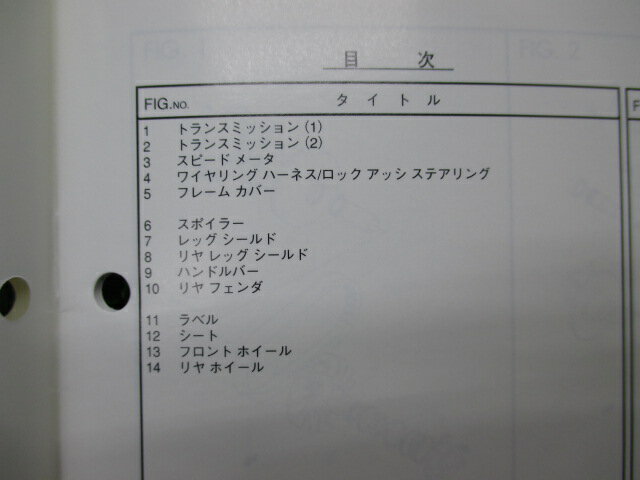 目 次
FIG.NO. タイトル
1 トランスミッション (1)
2 トランスミッション (2)
3 スピード メータ
4 ワイヤリング ハーネス/ロック アッシ ステアリング
5 フレーム カバー
6 スポイラー
7 レッグ シールド
8 リヤ レッグ シールド
9 ハンドルバー
10 リヤ フェンダ
11 ラベル
12 シート
13 フロント ホイール
14 リヤ ホイール
FIG. 2